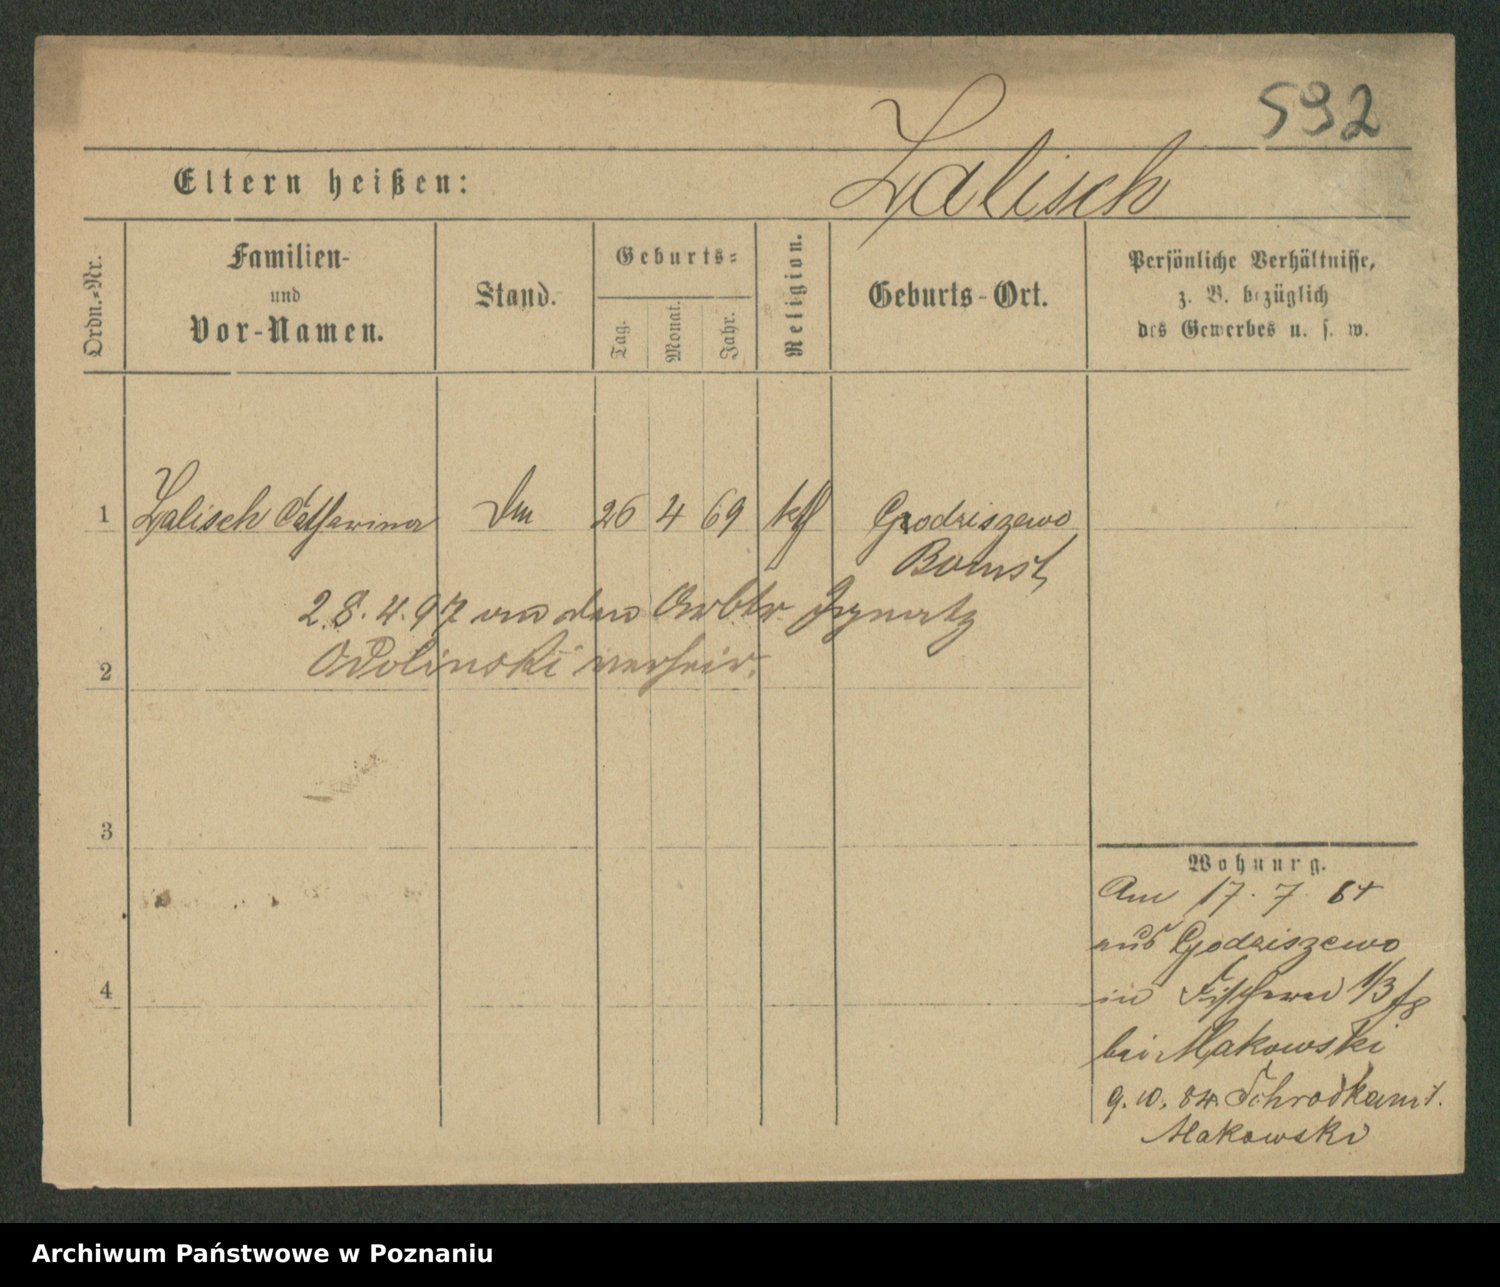 592
Zalisch
Eltern heißen:
Ordn.-Nr.
Familien-
und
Vor-Namen.
Stand.
Geburts-
Tag.
Monat.
Jahr.
Religion.
Geburts-Ort.
Persönliche Verhältnisse,
z. B. bezüglich
des Gewerbes u. s. w.
1 Zalisch Catharina 26 4 69 kth Grodziszewo
Bomst
28.4.97 an den Arbtr Ignatz
2 verheir.
3
Wohnung.
Am 17. 7. 84
aus Godziszewo
4 in Fischerei 1/3
bei Makowski
9. 10. 84.
Makowski
Archiwum Państwowe w Poznaniu